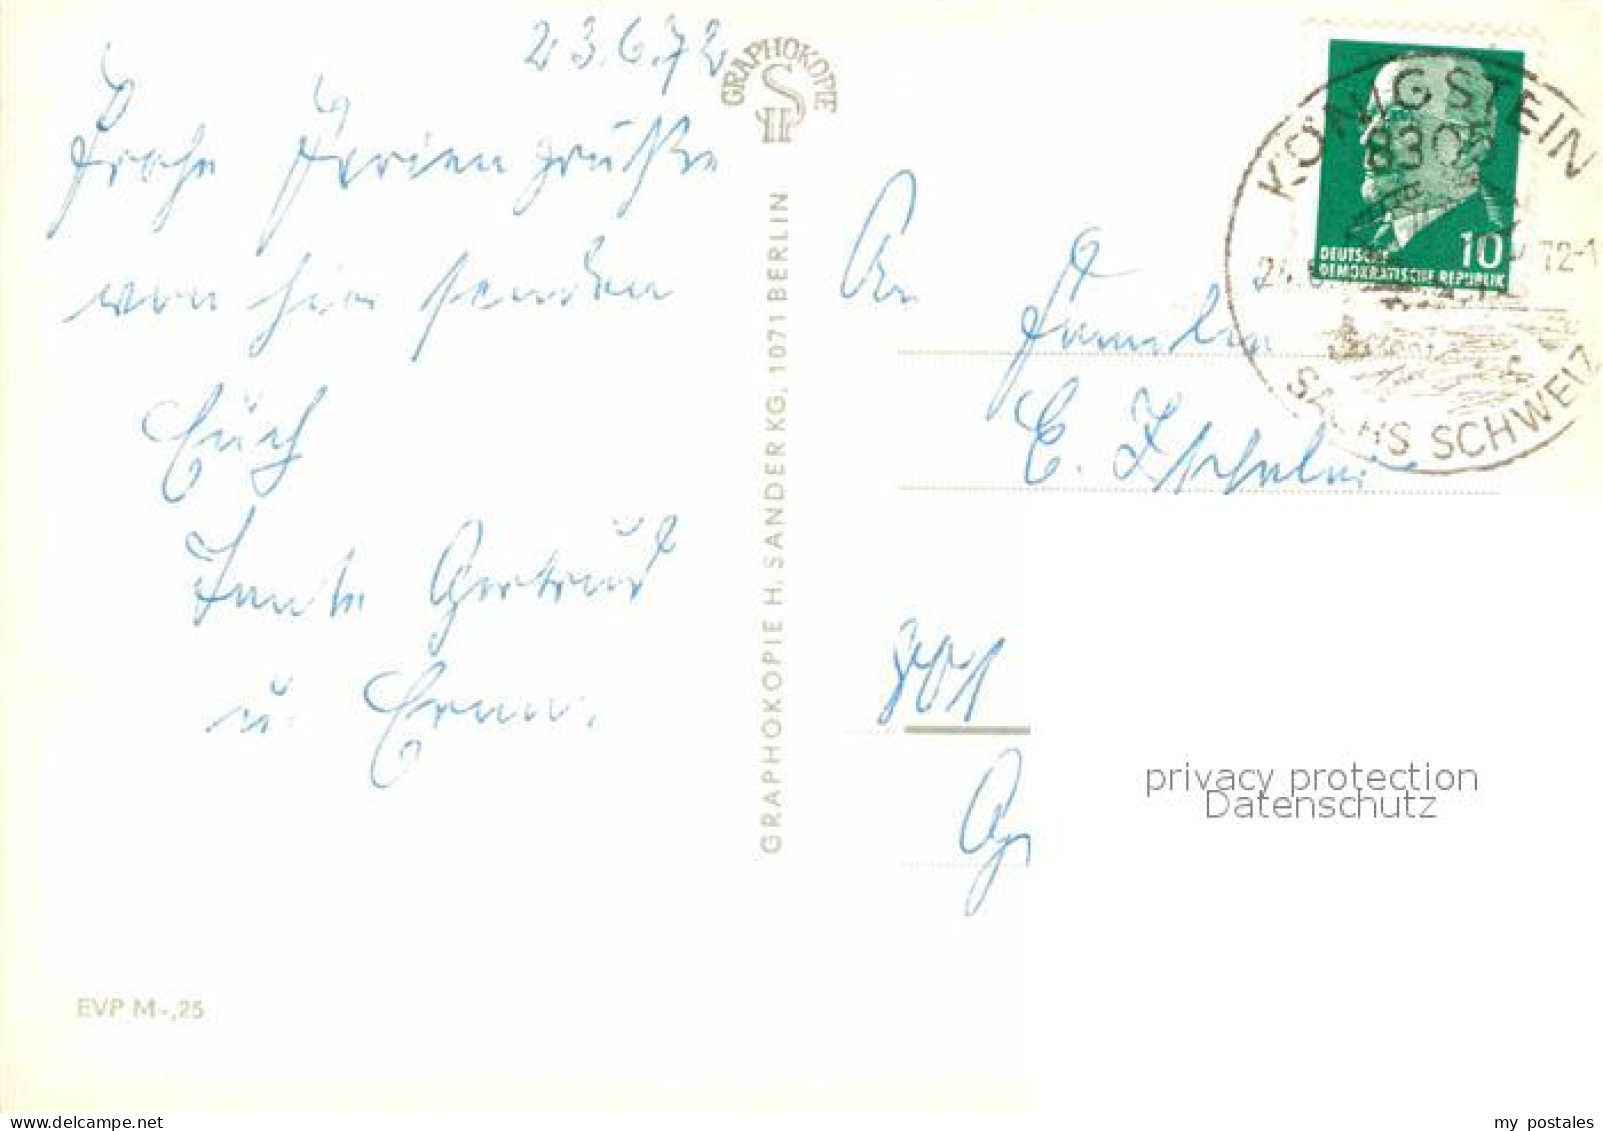 23.6.72
Frohe Feriengrüße
von hier senden
Euch
Tante Gertrud
u. Erna.
EVP M -,25
GRAPHOKOPIE
H S
GRAPHOKOPIE H. SANDER KG, 1071 BERLIN
An
Familie
E.
KÖNIGSTEIN
8305
24.6
72-1
SÄCHS SCHWEIZ
10
DEUTSCHE
DEMOKRATISCHE REPUBLIK
privacy protection
Datenschutz
my postales